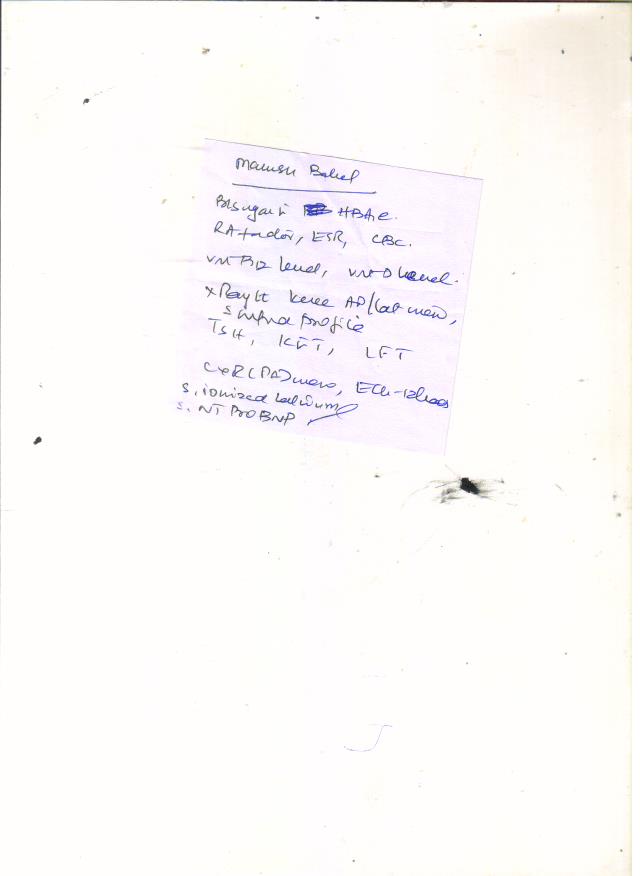 Manish
Bl sugar F HBA1c.
RA factor, ESR, CBC.
Vit B12 level, Vit D level.
X Ray Lt knee AP/Lat view,
S. profile
TSH, KFT, LFT
CxR (PA) view, ECG-12 leads
S. ionized calcium
S. NT Pro BNP